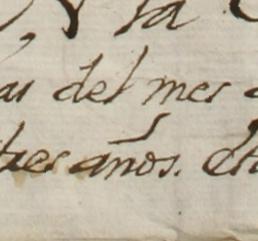 la
del mes
tres años.